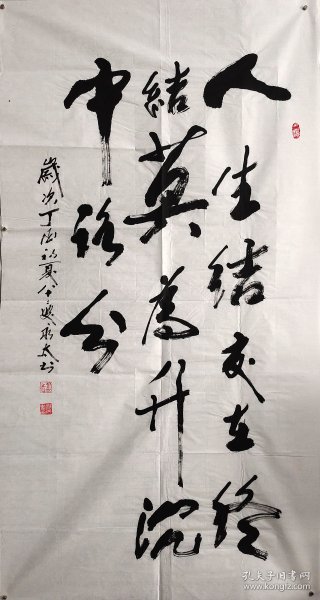 人生結交在終
結莫為升沉
中路分
歲次丁酉初夏
孔夫子旧书网
www.kongfz.com